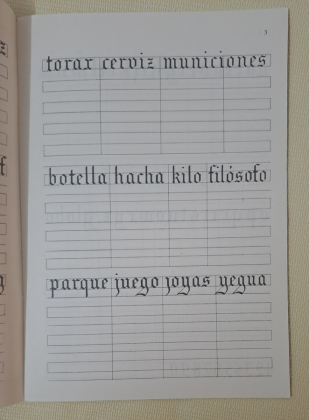 torax cerviz municiones
botella hacha kilo filósofo
parque juego joyas yegua